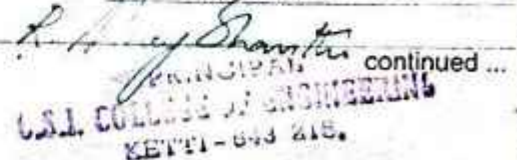 continued ...
PRINCIPAL
C.S.I. COLLEGE OF ENGINEERING
KETTI - 643 215.